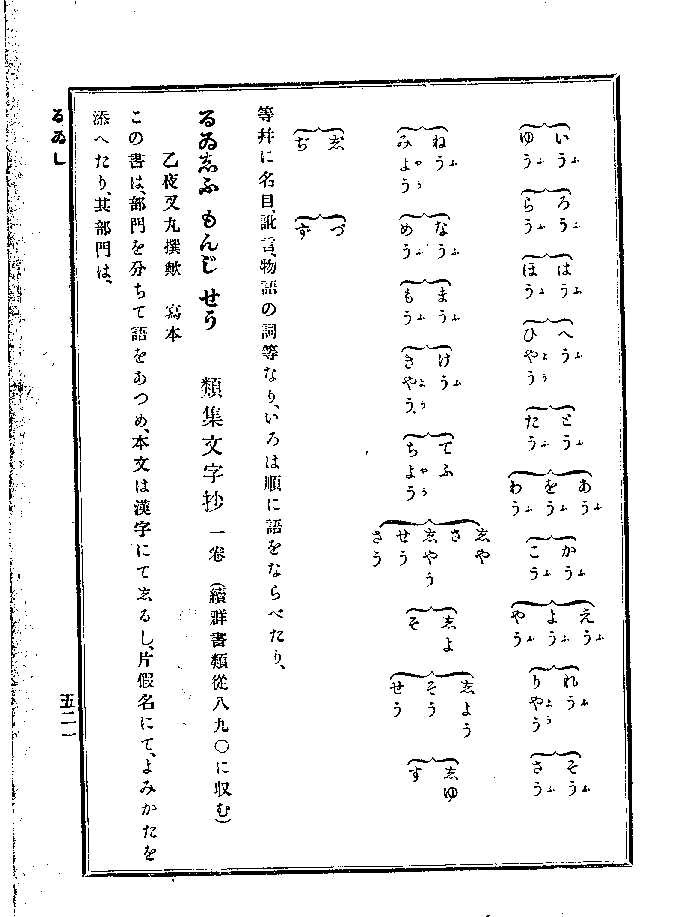 いう ゆう
ろう らう
はう ほう
へう ひやう
どう たう
あう をう わう
かう こう
えう よう やう
れう りやう
そう さう
ねう みよう
なう めう
まう もう
けう きやう
てふ ちよう
志や さ
志やう せう さう
志よ そ
志よう そう せう
志ゆ す
ゑ ぢ
づ ず
等幷に名目、訛言、物語の詞等なり、いろは順に語をならべたり、
るゐ志ふ もんじ せう 類集文字抄 一卷 (續群書類從八九〇に収む)
乙夜叉九撰歟 寫本
この書は、部門を分ちて語をあつめ、本文は漢字にて志るし、片假名にて、よみかたを
添へたり、其部門は、
るゐし
五二一